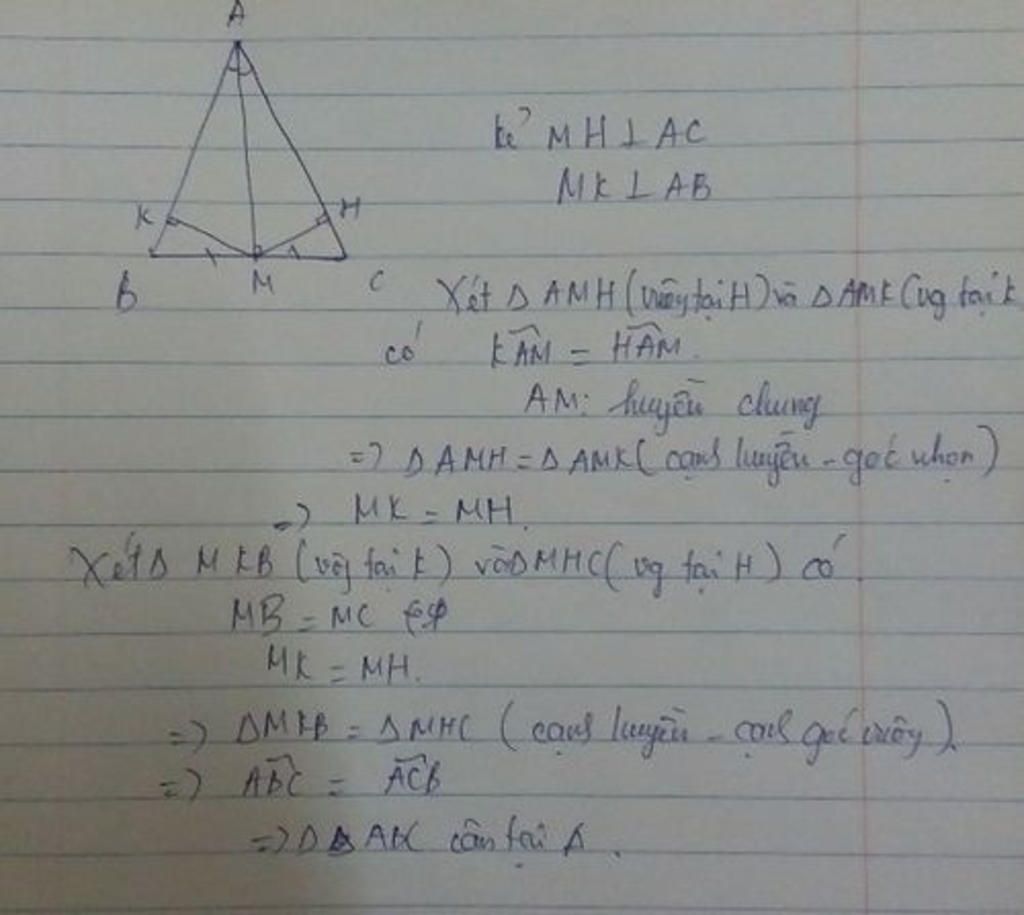 A
kẻ MH ⊥ AC
MK ⊥ AB
K H
B M C
Xét Δ AMH (vuông tại H) và Δ AMK (vg tại K
có KAM = HAM.
AM: huyền chung
=> Δ AMH = Δ AMK (cạnh huyền - góc nhọn)
=> MK = MH.
Xét Δ MKB (vuông tại K) và Δ MHC (vg tại H) có
MB = MC
MK = MH.
=> ΔMKB = ΔMHC (cạnh huyền - cạnh góc vuông).
=> ABC = ACB
=> Δ ABC cân tại A.